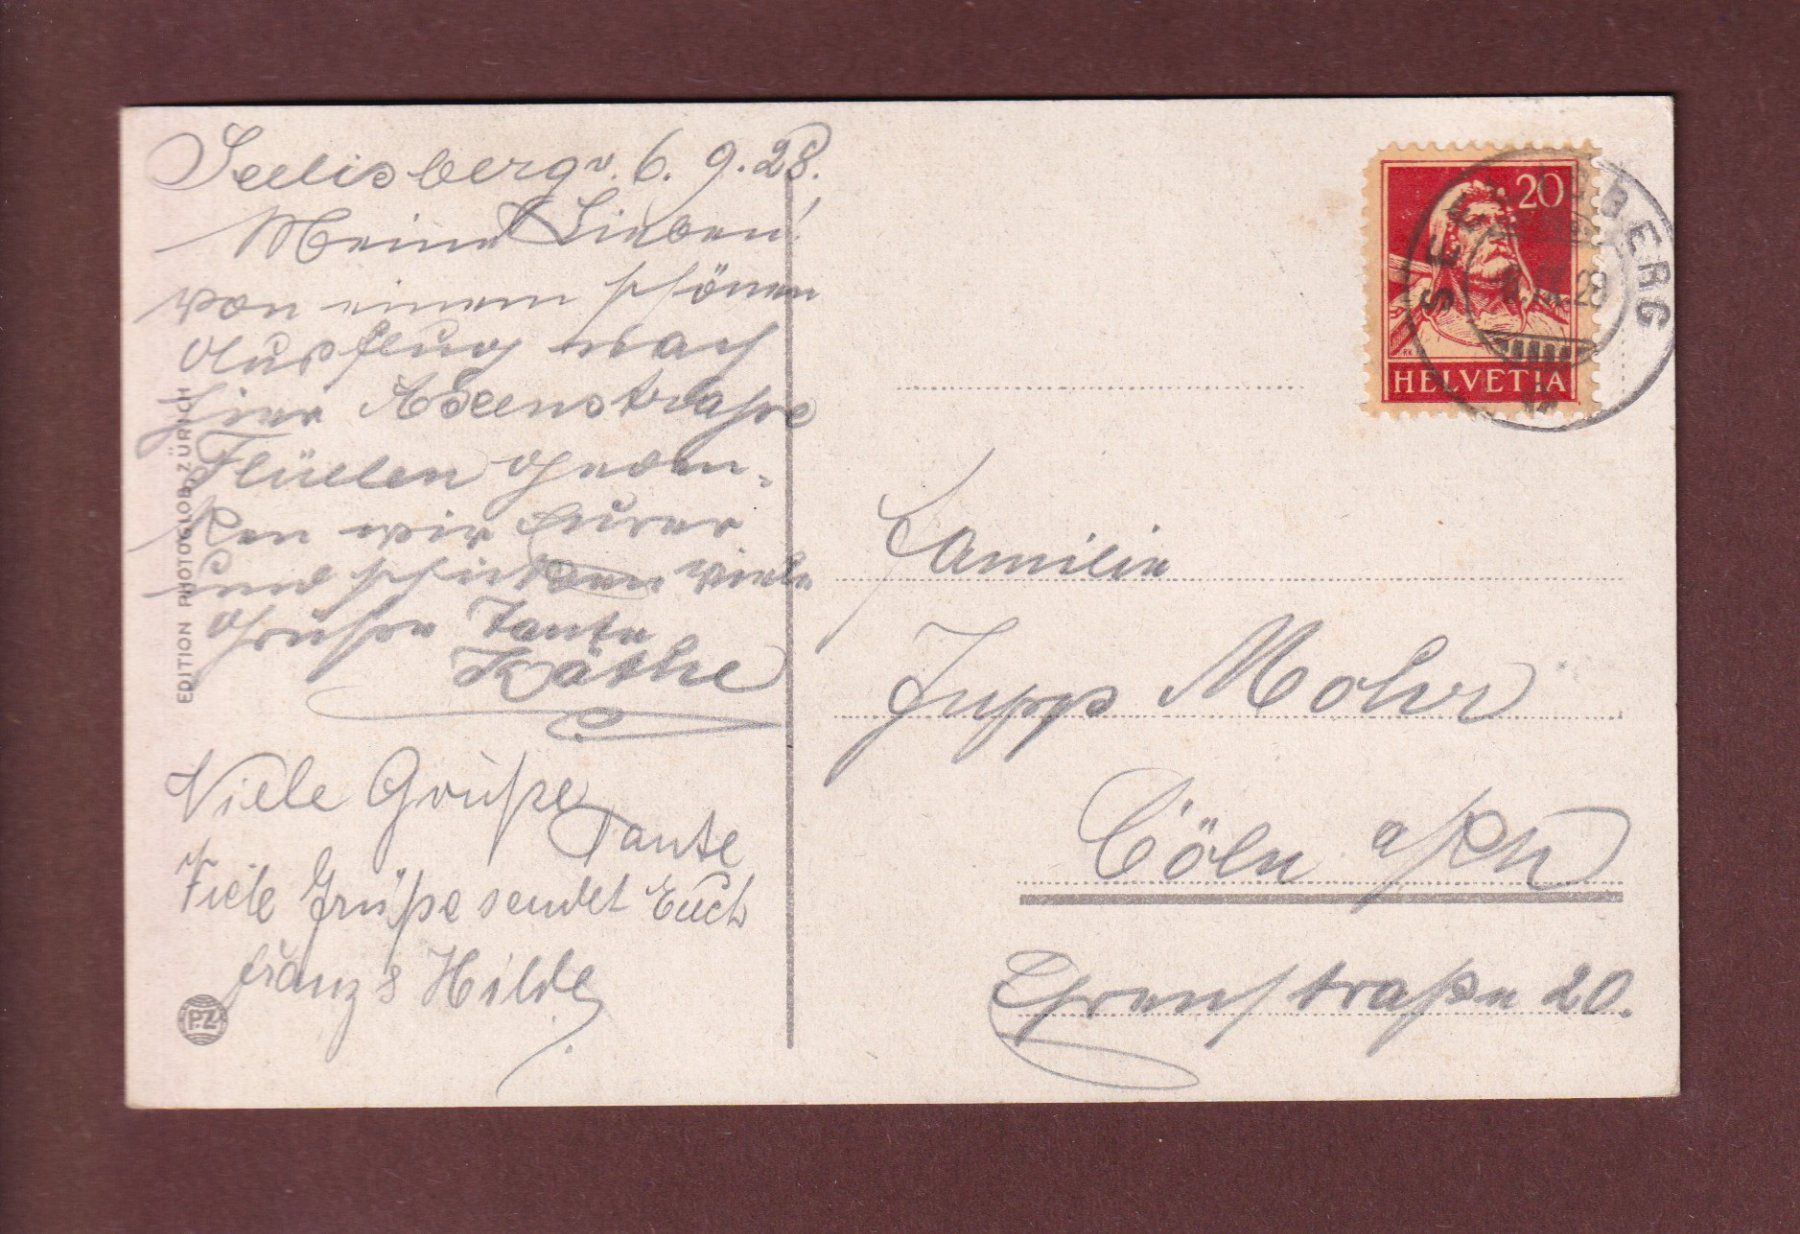 Seelisberg v. 6.9.28.
Meine Lieben!
von einem schönen
Ausflug nach
hier Axenstraße
Flüelen geden-
ken wir Eurer
und schicken viele
Grüße Tante
Käthe
Viele Grüße
Tante
Viele Grüße sendet Euch
Franz & Hilde
EDITION PHOTOGLOB, ZÜRICH
PZ
20
HELVETIA
SEELISBERG
6.IX.28
Familie
Jupp Mohr
Cöln a/Rh
Ehrenstraße 20.